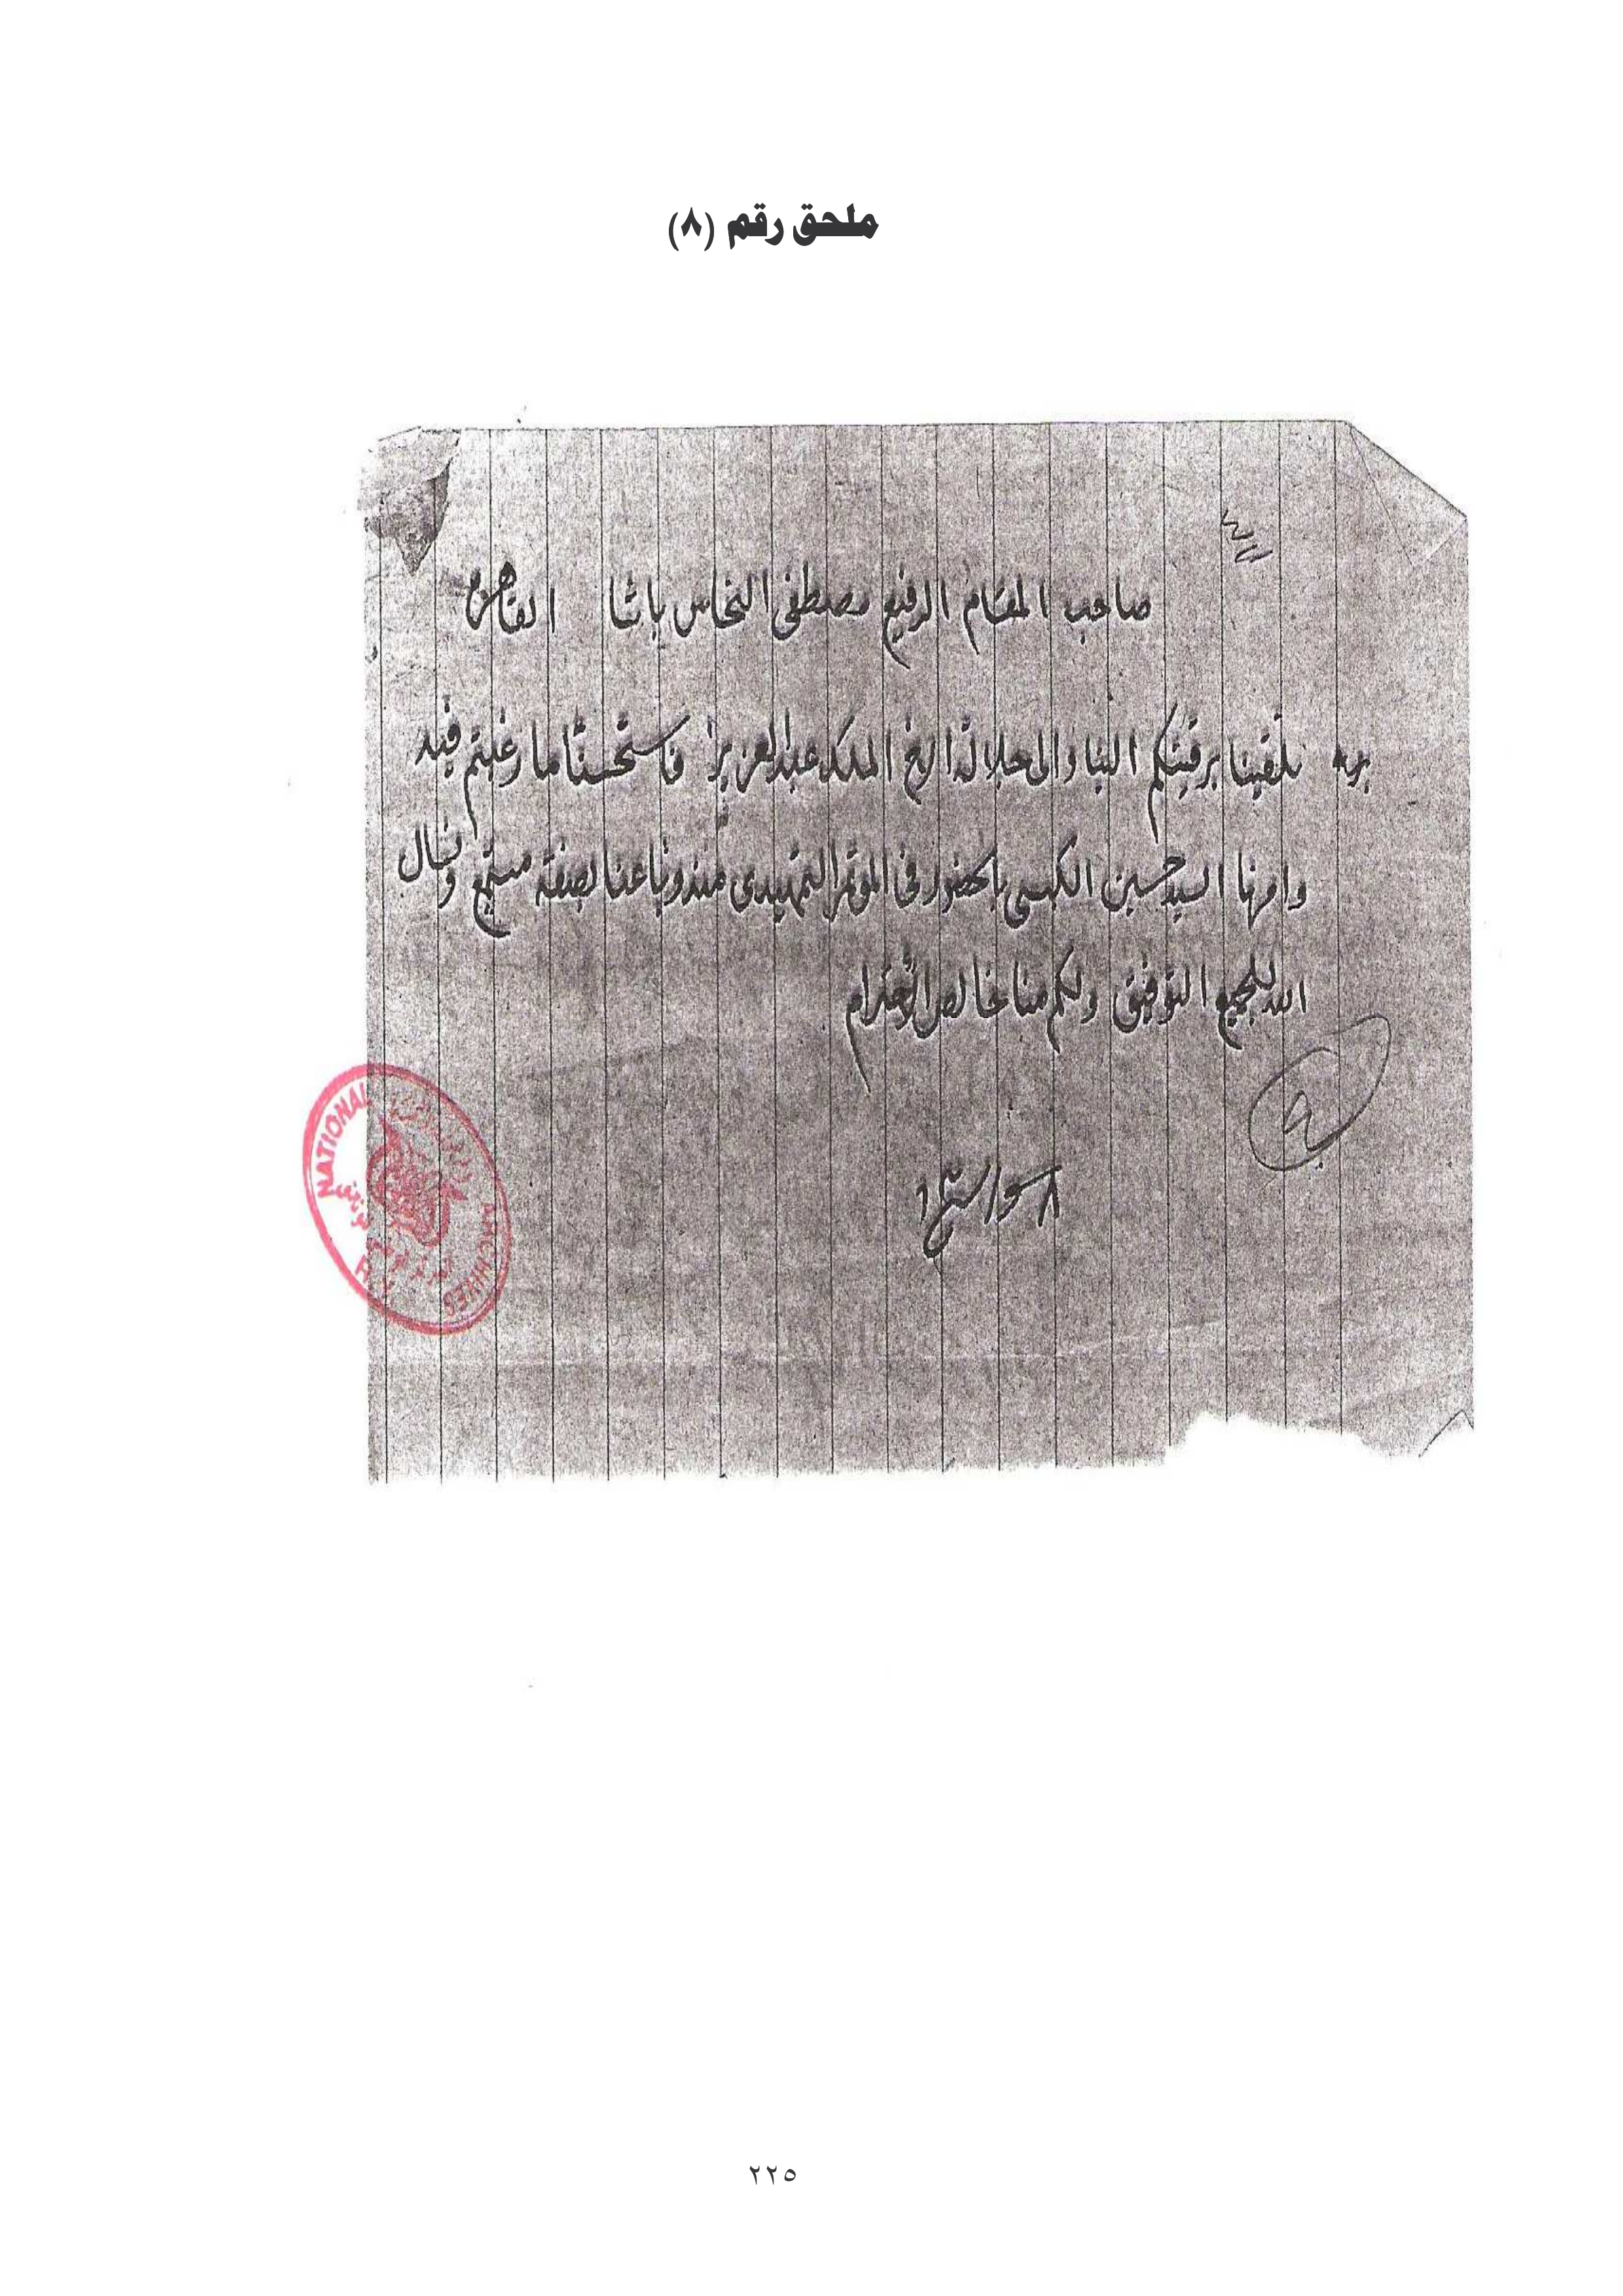 ملحق رقم (٨)
صاحب المقام الرفيع مصطفى النحاس باشا القاهرة
تلقينا برقيتكم الينا والى جلالة الاخ الملك عبدالعزيز فاستحسنا ما رغبتم فيه
وامرنا السيد حسين الكبسي بالحضور في المؤتمر التمهيدي مندوبا عنا بصفة مستمع ونسال
الله للجميع التوفيق ولكم منا خالص الاحترام
NATIONAL
ARCHIVES
٢٢٥